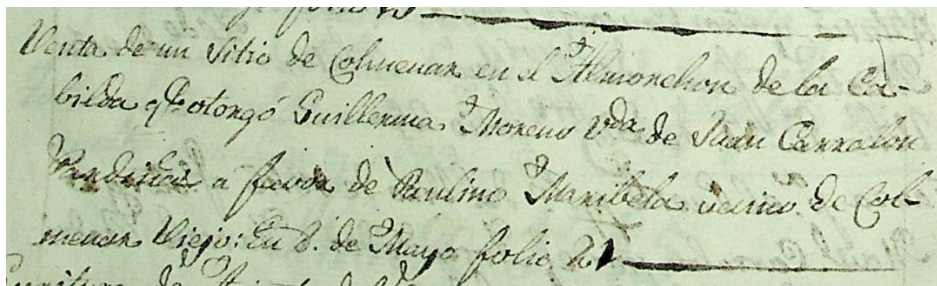 Venta de un Sitio de Colmenar en el Almonchon de la Ca-
bilda q.e otorgó Guillerma Moreno Vda de Juan Carralon
a favor de Paulino Maribela vecino de Col-
menar Viejo: En 8. de Mayo folio 21